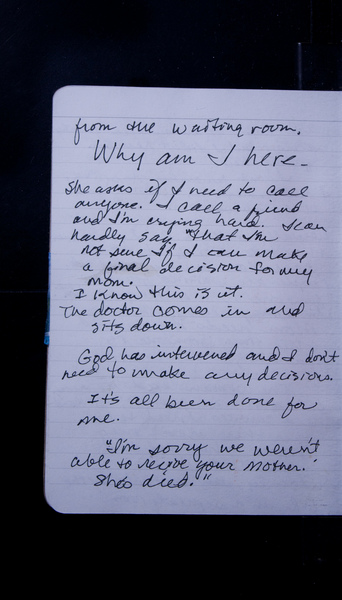 from the waiting room.
Why am I here-
She asks if I need to call
anyone. I call a friend
and I'm crying hard. I can
hardly say "that I'm
not sure if I can make
a final decision for my
mom.
I know this is it.
The doctor comes in and
sits down.
God has intervened and I don't
need to make any decisions.
It's all been done for
me.
"I'm sorry we weren't
able to recive your mother.
She's died."